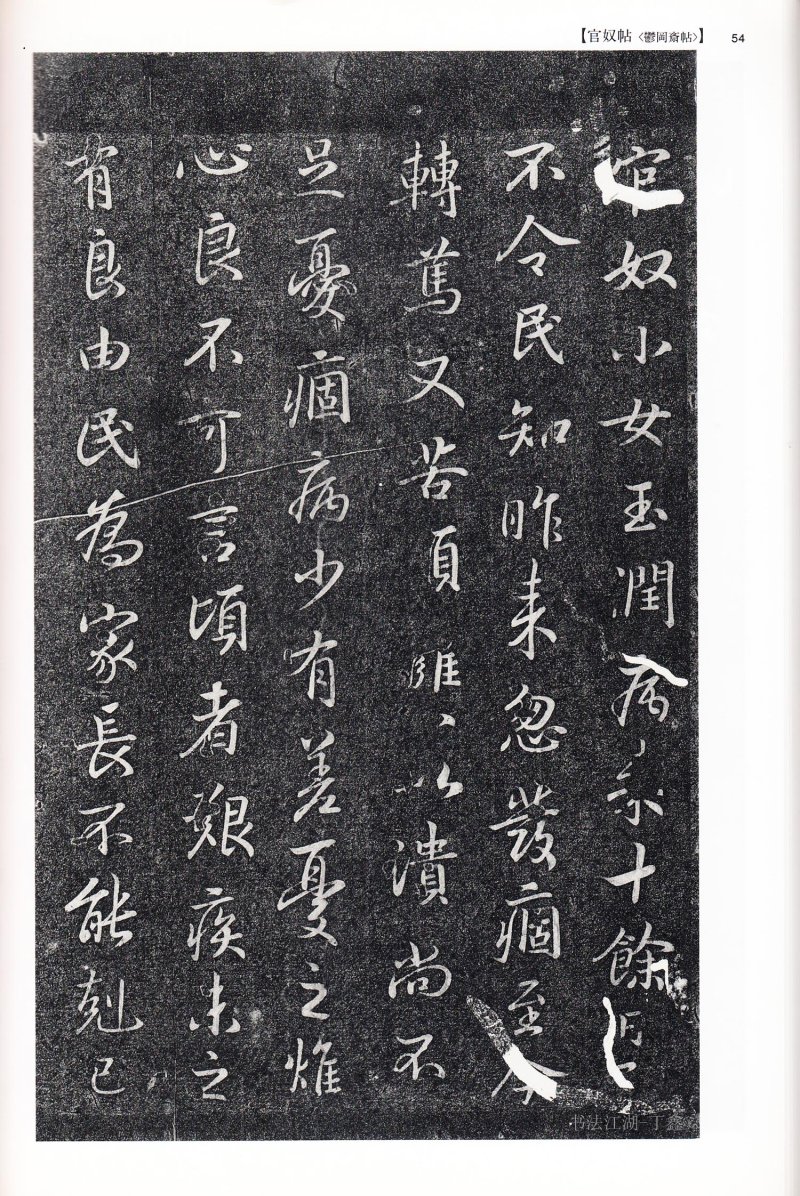 【官奴帖〈鬱岡齋帖〉】 54
官奴小女玉潤病來十餘日
不令民知昨來忽發痼至今
轉篤又苦頭癰頭癰以潰尚不
足憂痼病少有差憂之燋
心良不可言頃者艱疾未之
有良由民為家長不能剋己
书法江湖 丁鑫